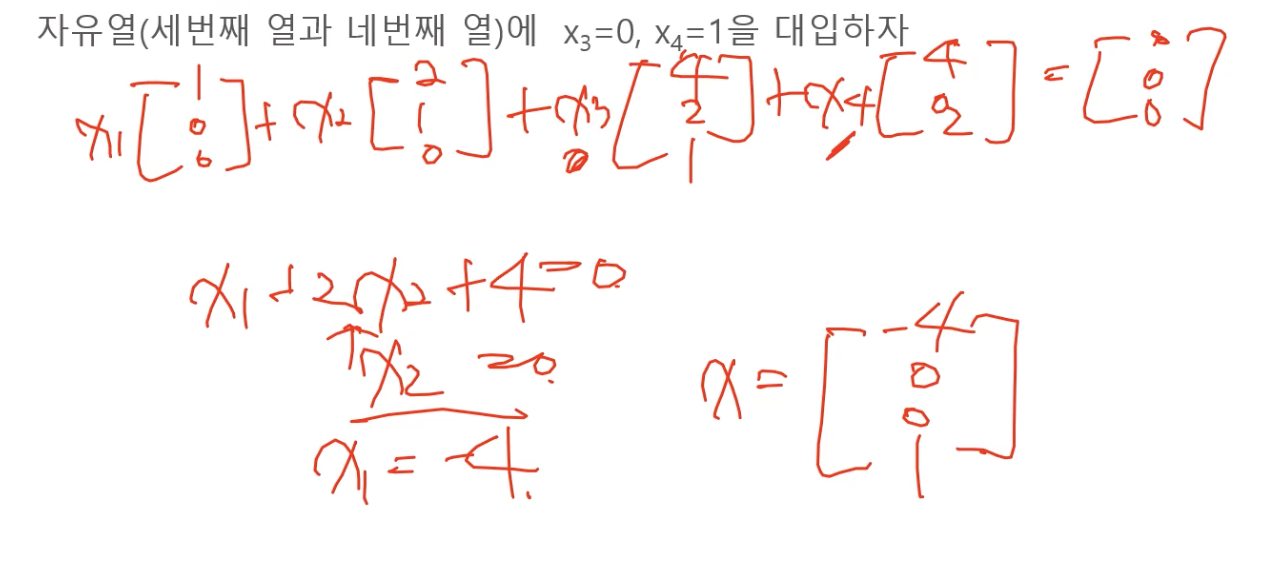 자유열(세번째 열과 네번째 열)에 x₃=0, x₄=1을 대입하자
x₁[1 0 0] + x₂[2 1 0] + x₃[4 2 1] + x₄[4 0 2] = [0 0 0]
0
x₁ + 2x₂ + 4 = 0.
x₂ = 0.
x₁ = -4.
x = [-4 0 0 1]